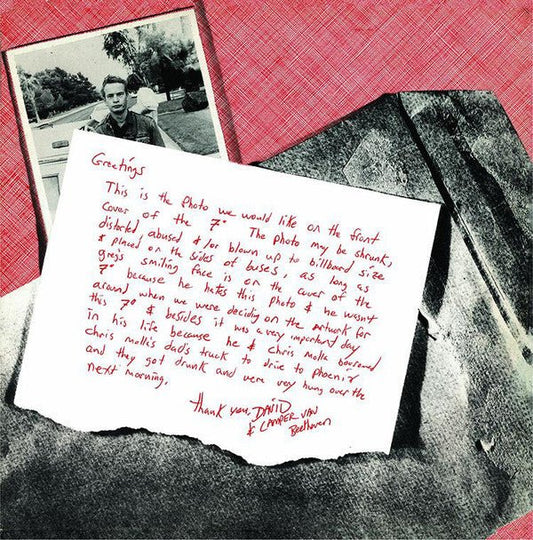 Greetings
This is the photo we would like on the front
cover of the 7" The photo may be shrunk,
distorted abused &/or blown up to billboard size
& placed on the sides of buses, as long as
greg's smiling face is on the cover of the
7" because he hates this photo & he wasn't
around when we were deciding on the artwork for
this 7" & besides it was a very important day
in his life because he & Chris molla borrowed
chris molla's dad's truck to drive to phoenix
and they got drunk and were very hung over the
next morning.
thank you, DAVID
& CAMPER VAN
Beethoven